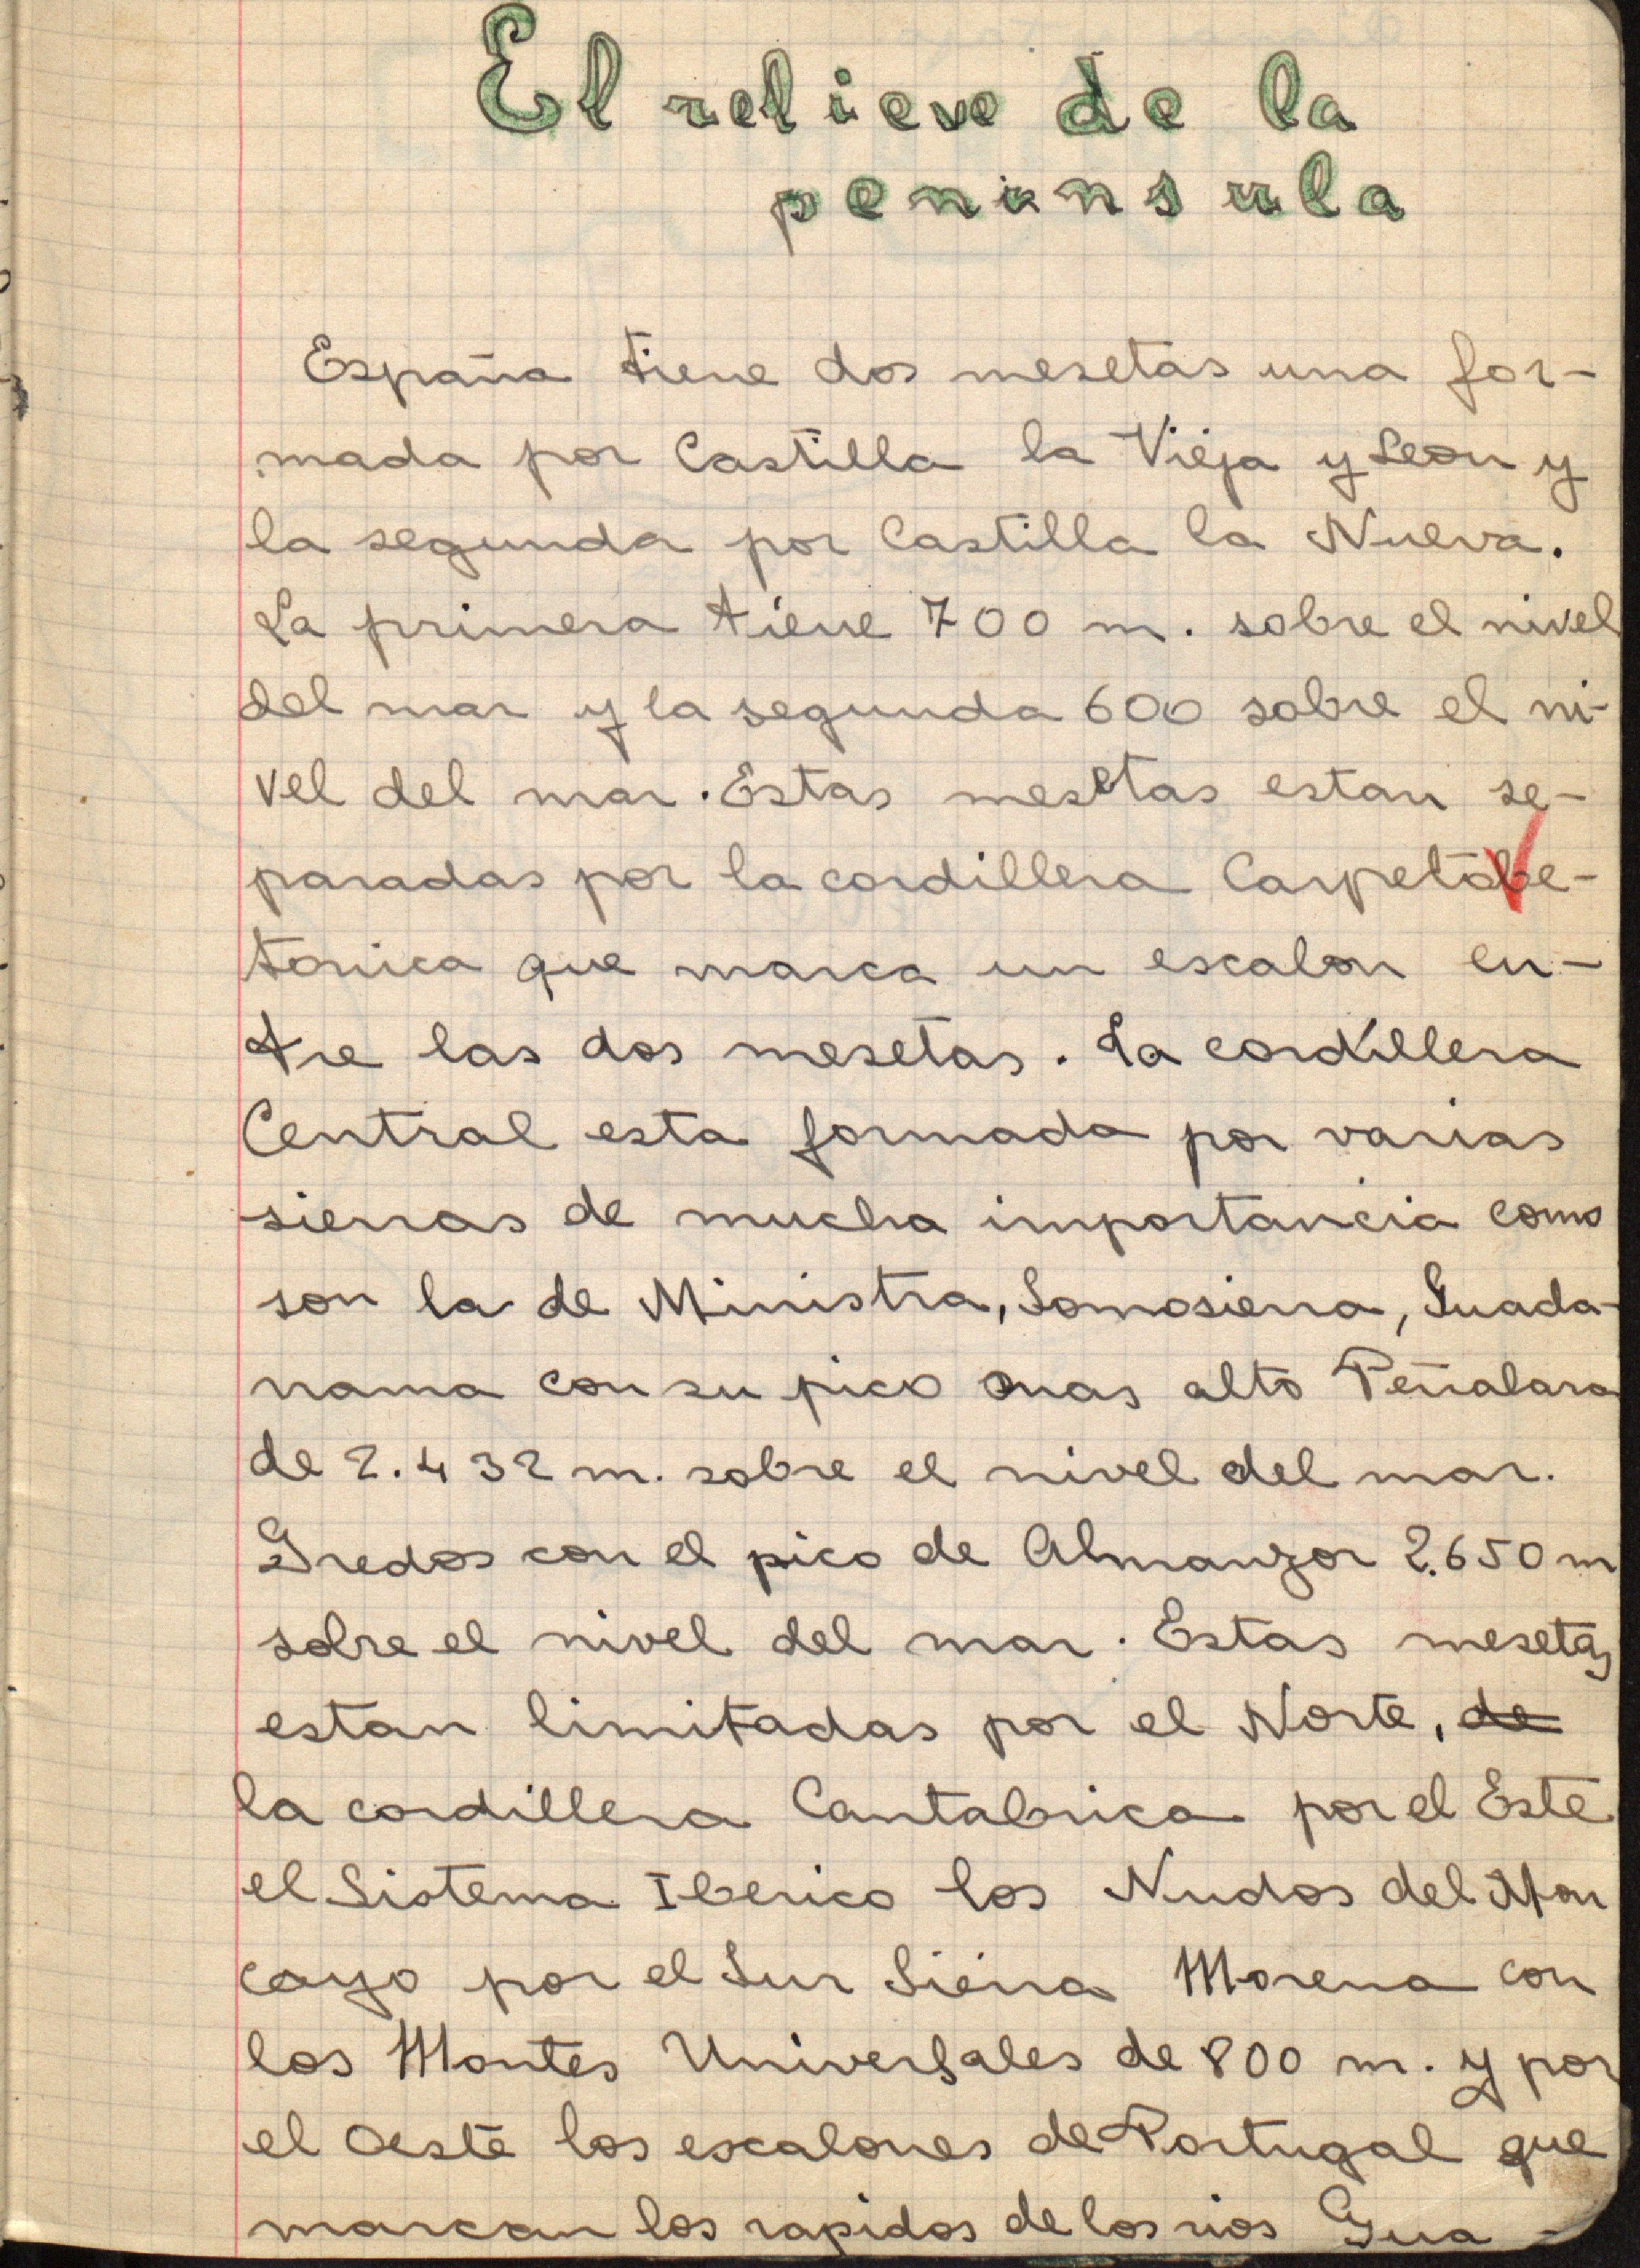 El relieve de la
peninsula
España tiene dos mesetas una for-
mada por Castilla la Vieja y Leon y
la segunda por Castilla la Nueva.
La primera tiene 700 m. sobre el nivel
del mar y la segunda 600 sobre el ni-
vel del mar. Estas mesetas estan se-
paradas por la cordillera Carpetove-
tonica que marca un escalon en-
tre las dos mesetas. La cordillera
Central esta formada por varias
sierras de mucha importancia como
son la de Ministra, Somosierra, Guada-
rrama con su pico mas alto Peñalara
de 2.432 m. sobre el nivel del mar.
Gredos con el pico de Almanzor 2.650 m
sobre el nivel del mar. Estas mesetas
estan limitadas por el Norte, de
la cordillera Cantabrica por el Este
el Sistema Iberico los Nudos del Mon
cayo por el Sur Sierra Morena con
los Montes Universales de 800 m. y por
el Oeste los escalones de Portugal que
marcan los rapidos de los rios Gua-